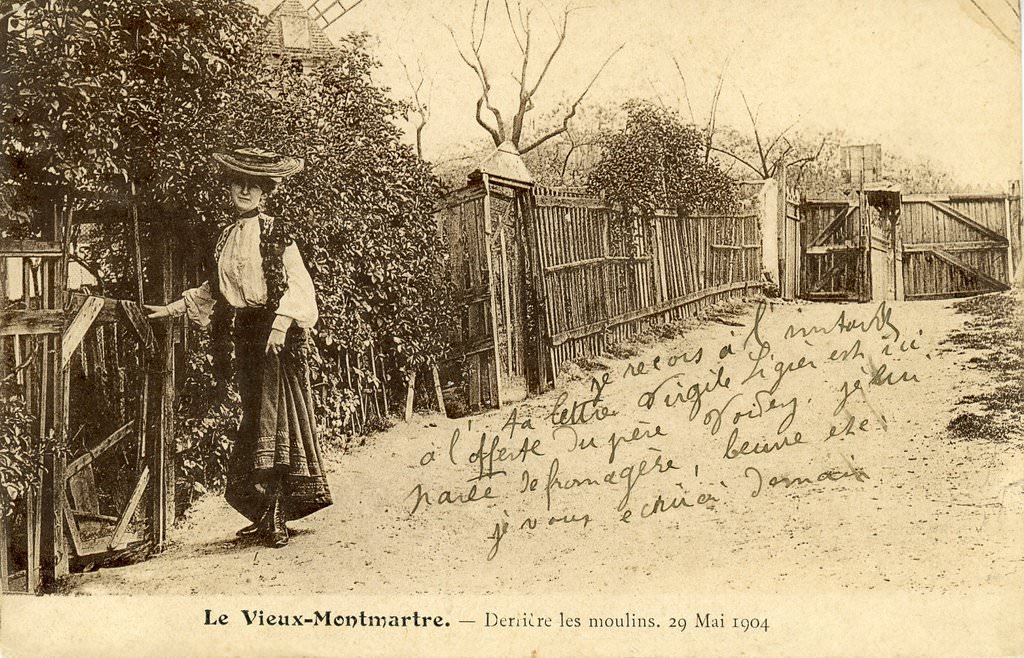 je reçois à l'instant
ta lettre Virgile Ligier est ici
à l'offerte du père Voidey. je lui
parlé de fromagère, beurre etc.
je vous echirai demain
Le Vieux-Montmartre. — Derrière les moulins. 29 Mai 1904